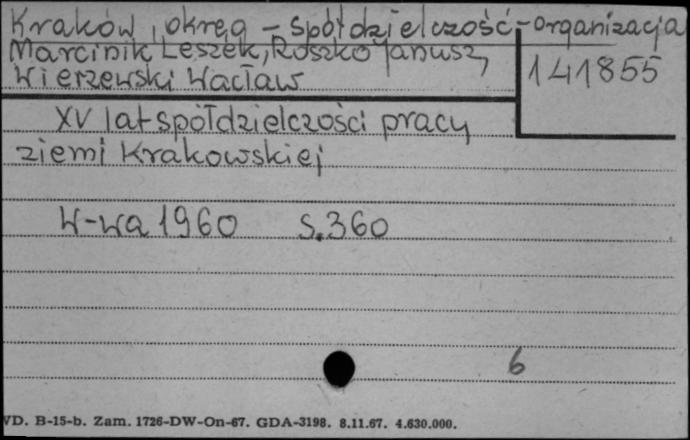 Kraków, okręg - spółdzielczość - organizacja
Marcinik Leszek, Roszko Janusz,
Wierzewski Wacław
141855
XV lat spółdzielczości pracy
ziemi Krakowskiej
W-wa 1960 s.360
6
VD. B-15-b. Zam. 1726-DW-On-67. GDA-3198. 8.11.67. 4.630.000.